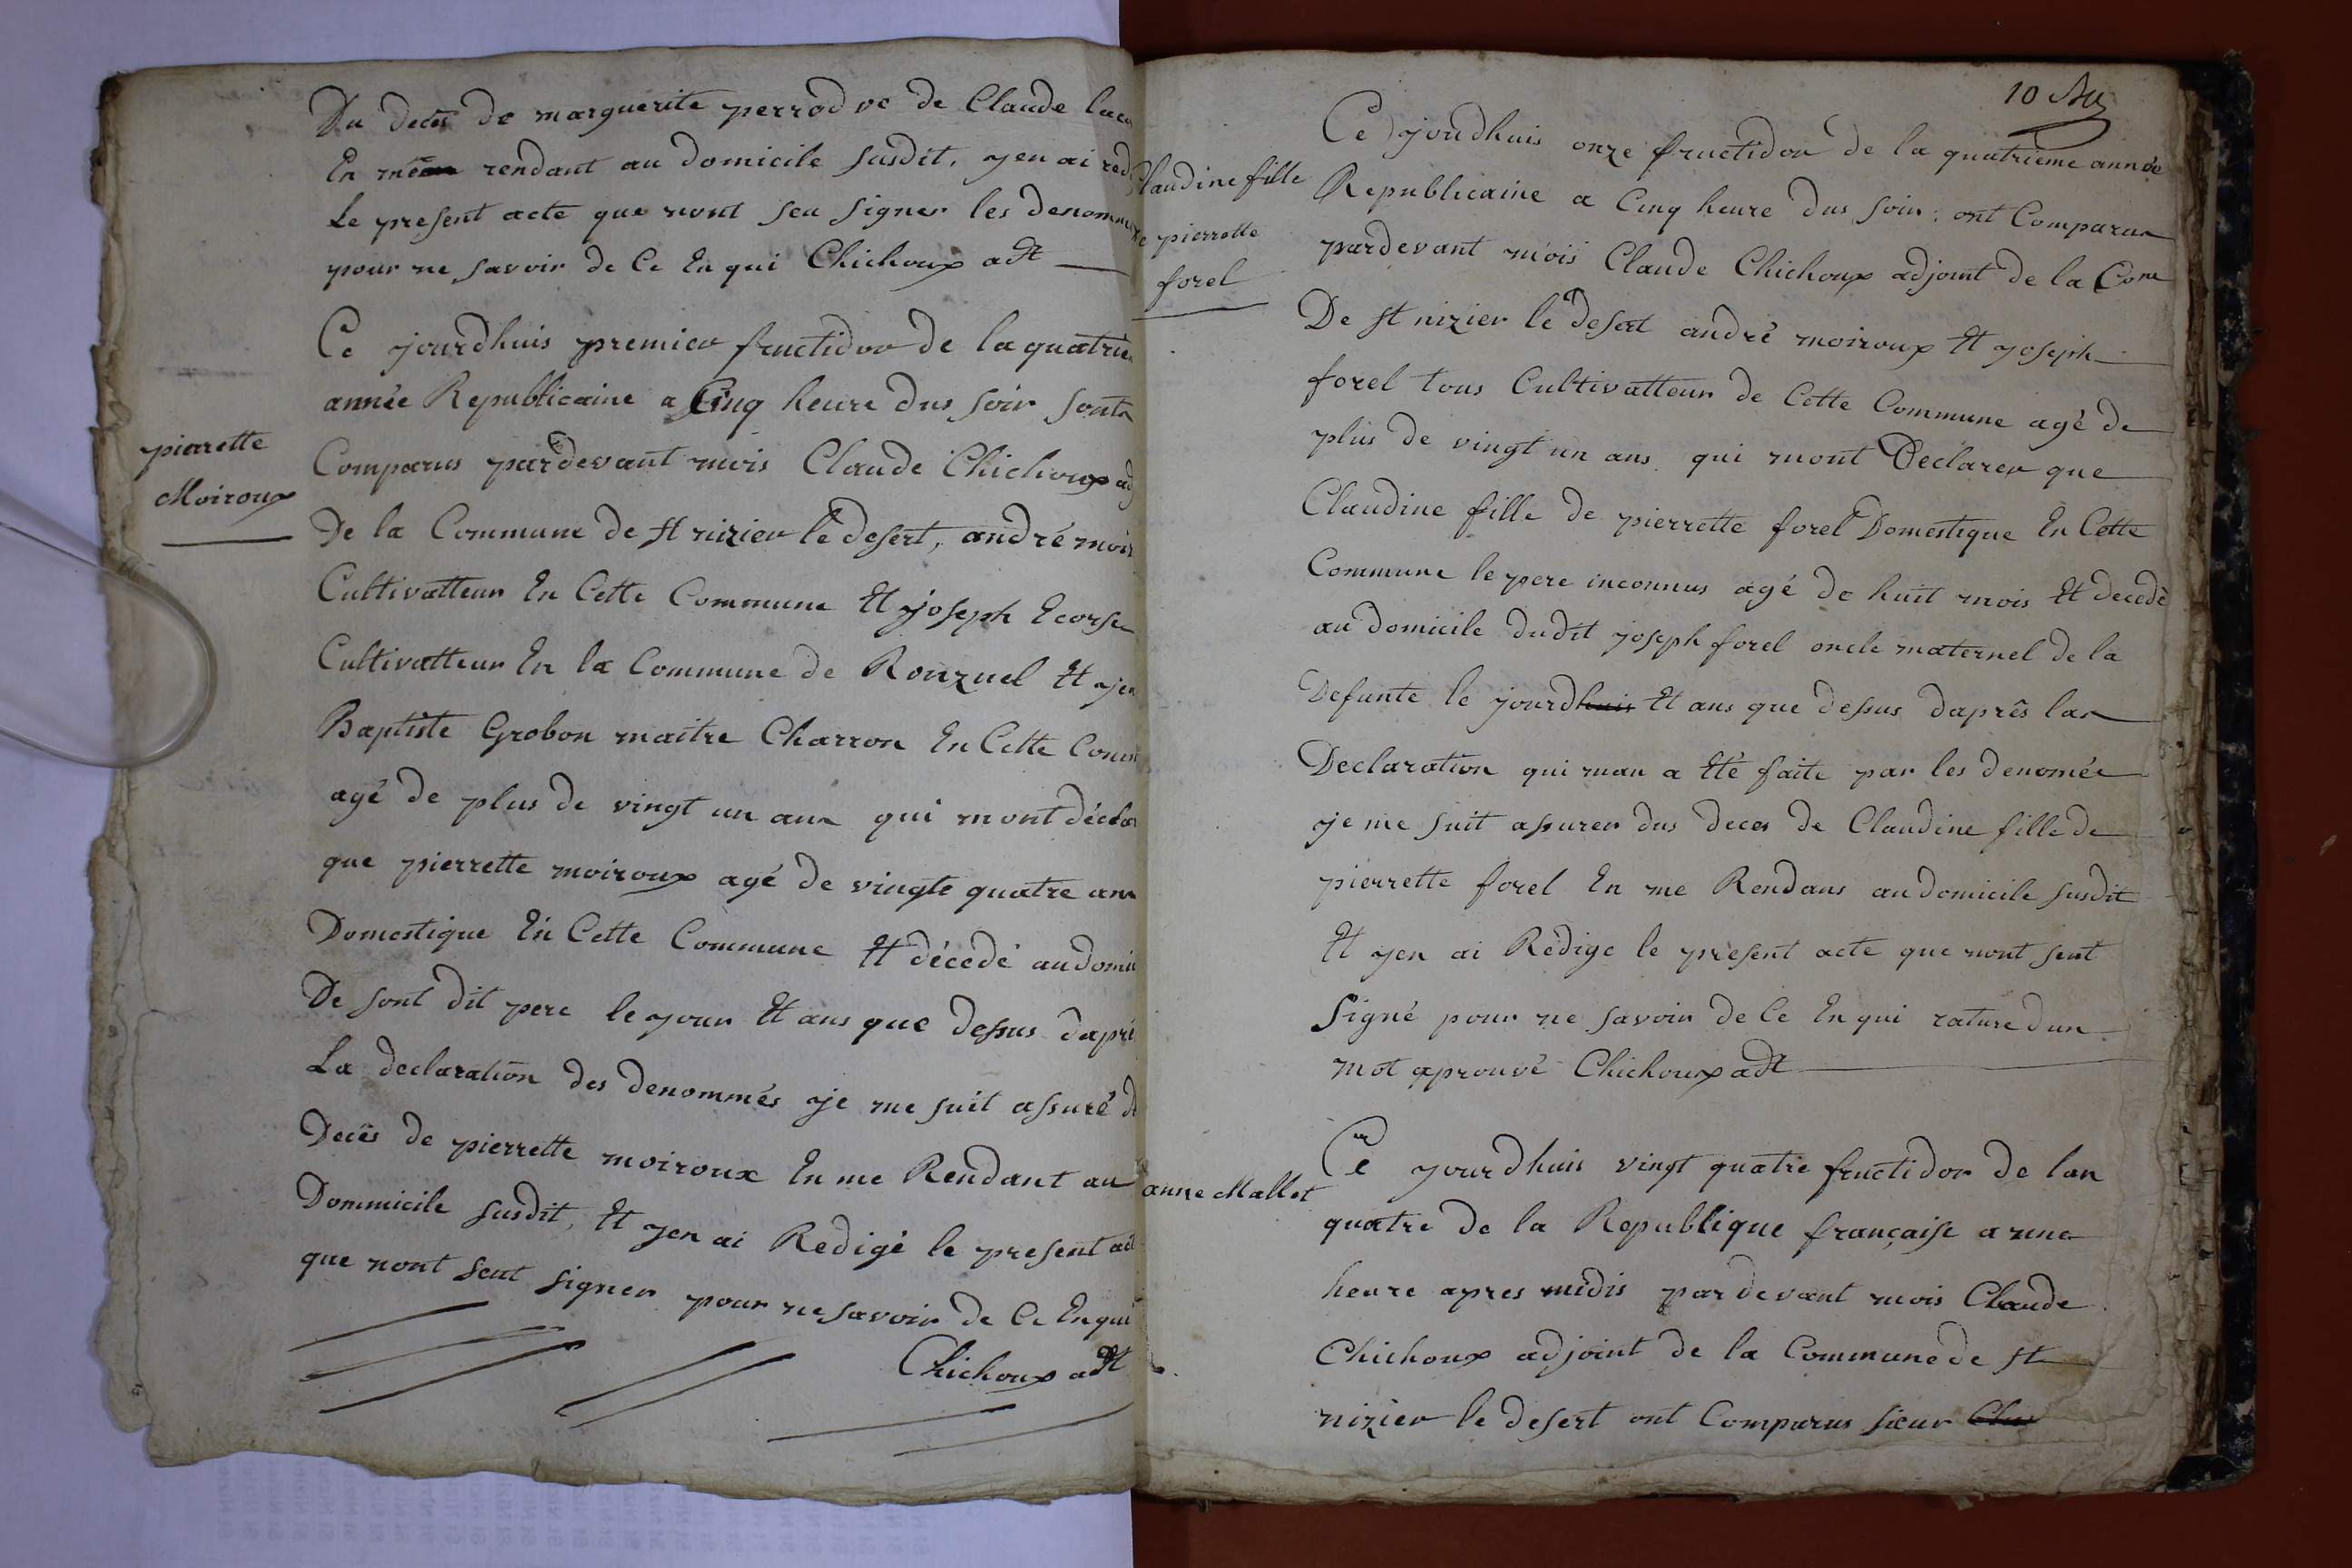 Du deces de marguerite perrod ve de Claude
En me rendant au domicile susdit, yen ai red
Le present acte que nont seu signer les denomme
pour ne savoir de Ce Enqui Chichoux adt
Ce jourdhuis premier fructidor de la quatrie
année Republicaine a Cinq heure dus soir sont
Comparus pardevant mois Claude Chichoux adj
pierrette
Moiroux
De la Commune de st nizier le desert, andré moir
Cultivatteur En Cette Commune Et joseph Ecorse
Cultivatteur En la Commune de Ronzuel Et jea
Baptiste Grobon maitre Charron En Cette Comm
agé de plus de vingt un ans qui mont décla
que pierrette moiroux agé de vingte quatre ans
Domestique En Cette Commune Et décedé audomi
De sont dit pere le jour Et ans que dessus daprè
La declaration des denommés je me suit assuré d
Decès de pierrette moiroux En me Rendant au
Dommicile susdit, Et yen ai Redigé le present act
que nont seut signer pour ne savoir de Ce Enqui
Chichoux adt
10
Claudine fille
de pierrette
forel
Ce jourdhuis onze fructidor de la quatrieme année
Republicaine a Cinq heure dus soir; ont Comparus
pardevant mois Claude Chichoux adjoint de la Comе
De st nizier le Desert andré moiroux Et joseph
forel tous Cultivatteur de Cette Commune agé de
plus de vingt un ans qui mont Declarer que
Claudine fille de pierrette forel Domestique En Cette
Commune le pere inconnus agé de huit mois Et decedé
au domicile dudit joseph forel oncle maternel de la
Defunte le jourdhuis Et ans que dessus daprês las
Declaration qui man a Eté faite par les denomée
je me suit assurer dus deces de Claudine fille de
pierrette forel En me Rendans audomicile susdit
Et yen ai Rédige le present acte que nont seut
Signé pour ne savoir de Ce Enqui rature dun
mot aprouvé Chichoux adt
anne Mallet
Ce jourdhuis vingt quatre fructidor de lan
quatre de la Republique française a une
heure apres midis pardevant mois Claude
Chichoux adjoint de la Commune de st
nizier le desert ont Comparus sieur